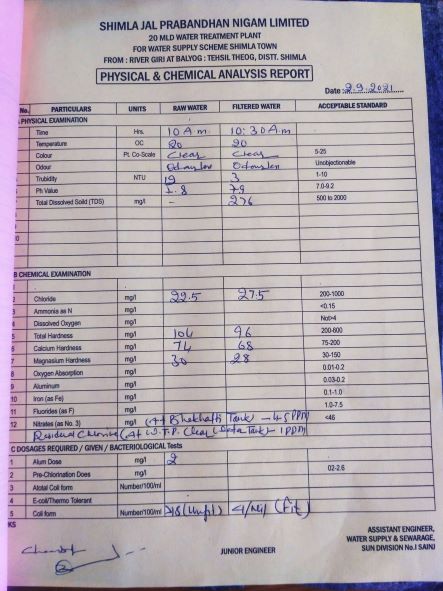 SHIMLA JAL PRABANDHAN NIGAM LIMITED
20 MLD WATER TREATMENT PLANT
FOR WATER SUPPLY SCHEME SHIMLA TOWN
FROM : RIVER GIRI AT BALYOG : TEHSIL THEOG, DISTT. SHIMLA
PHYSICAL & CHEMICAL ANALYSIS REPORT
Date : 2.9.2021
No. PARTICULARS UNITS RAW WATER FILTERED WATER ACCEPTABLE STANDARD
PHYSICAL EXAMINATION
Time Hrs. 10 A m 10:30 A.m
Temperature OC 20 20
Colour Pt. Co-Scale Clear Clear 5-25
Odour Unobjectionable
Trubidity NTU 19 3 1-10
Ph Value 7.9 7.0-9.2
Total Dissolved Soild (TDS) mg/l - 276 500 to 2000
10
B CHEMICAL EXAMINATION
2 Chloride mg/l 22.5 27.5 200-1000
3 Ammonia as N mg/l <0.15
4 Dissolved Oxygen mg/l Not>4
5 Total Hardness mg/l 104 96 200-600
6 Calcium Hardness mg/l 74 68 75-200
7 Magnesium Hardness mg/l 30 28 30-150
8 Oxygen Absorption mg/l 0.01-0.2
9 Aluminum mg/l 0.03-0.2
10 Iron (as Fe) mg/l 0.1-1.0
11 Fluorides (as F) mg/l 1.0-7.5
12 Nitrates (as No. 3) mg/l (At Tank) <46
Residual Chlorine (At W.T.P. Clear Water Tank)- 1 PPM
C DOSAGES REQUIRED / GIVEN / BACTERIOLOGICAL Tests
1 Alum Dose mg/l 2
2 Pre-Chlorination Does mg/l 02-2.6
3 Atotal Coli form Number/100/ml
4 E-coli/Thermo Tolerant
5 Coli form Number/100/ml (Unfit) (Fit)
KS
JUNIOR ENGINEER
ASSISTANT ENGINEER,
WATER SUPPLY & SEWARAGE,
SUN DIVISION No.I SAINJ